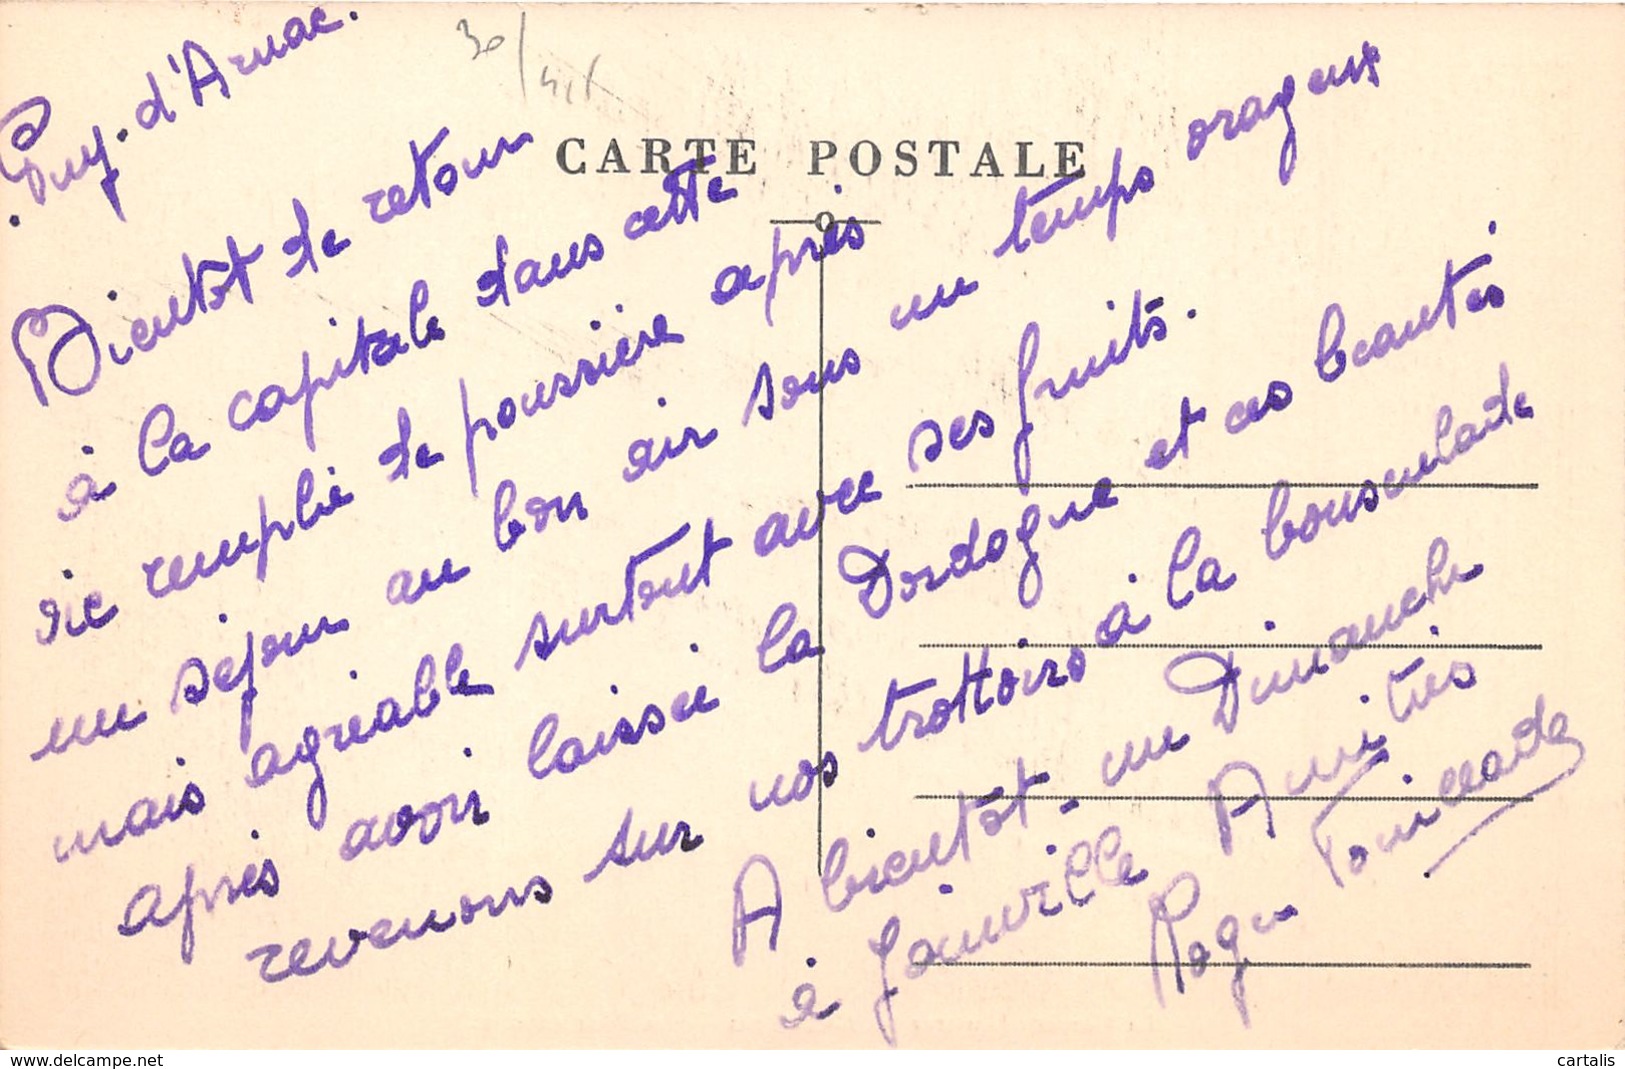 Puy. d'Arnac.
30/
CARTE POSTALE
Bientot de retour
à la capitale dans cette
vie remplie de poussière après
un séjour au bon air sous un temps orageux
mais agréable surtout avec ses fruits.
après avoir laissée la Dordogne et ces beautés
revenons sur nos trottoirs à la bousculade
A bientot - un Dimanche
à Joinville Amitiés
Roger
www.delcampe.net
cartalis